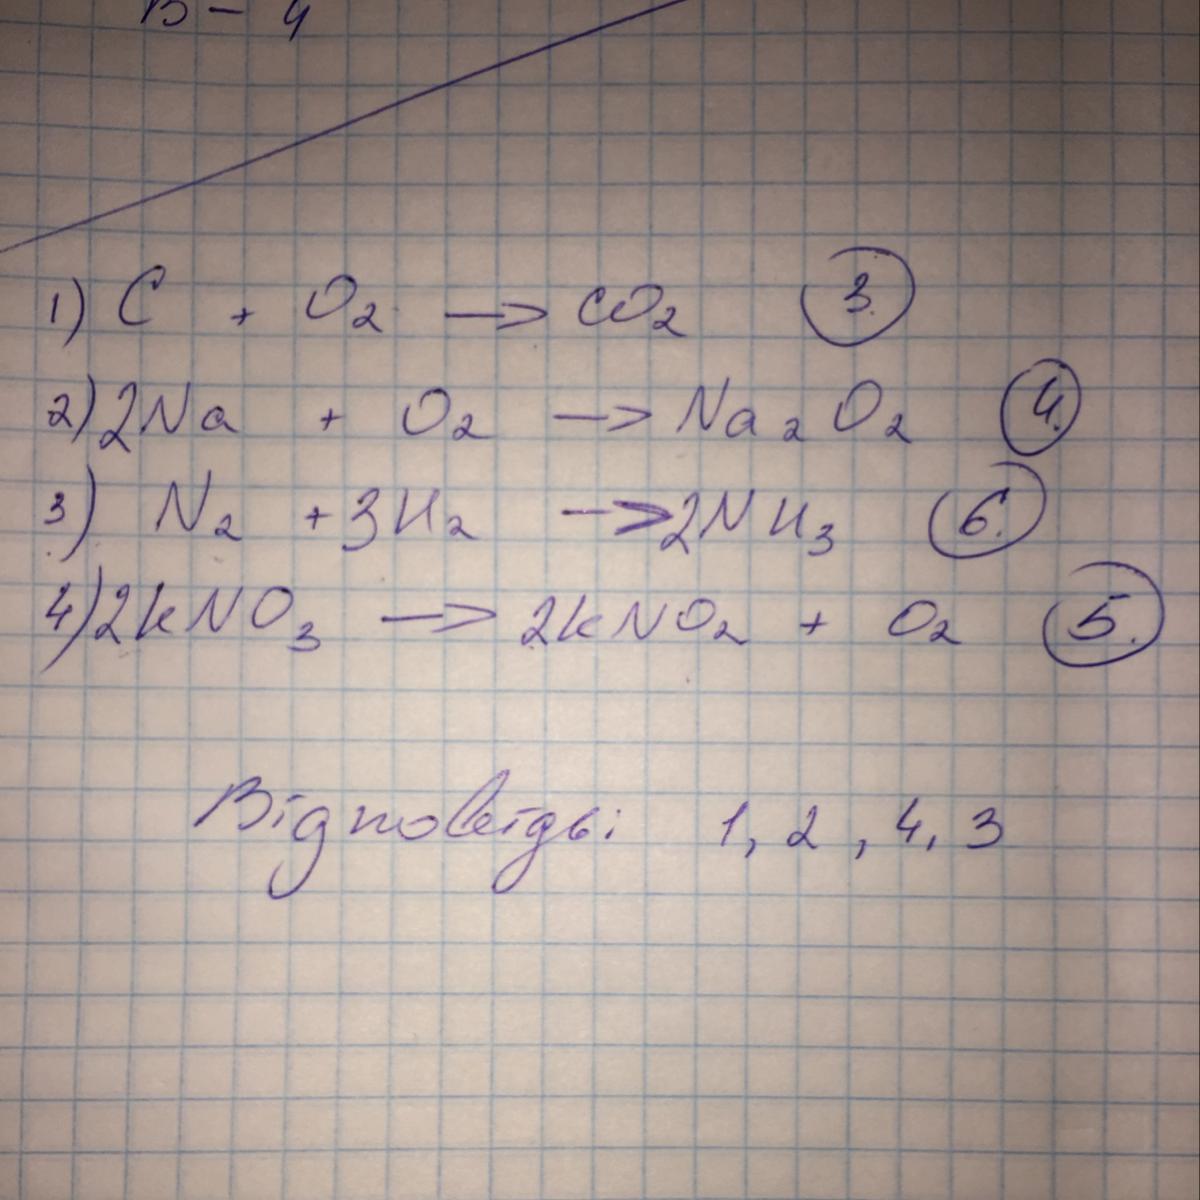 В - 4
1) C + O₂ → CO₂ 3.
2) 2Na + O₂ → Na₂O₂ 4.
3) N₂ + 3H₂ → 2NH₃ 6.
4) 2KNO₃ → 2KNO₂ + O₂ 5.
Відповідь: 1, 2, 4, 3